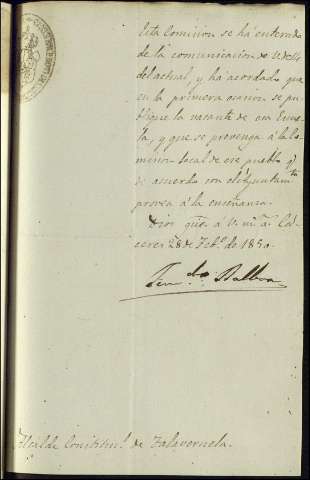 Esta Comision se há enterado
de la comunicacion de V. de 14
del actual, y ha acordado que
en la primera ocasion se pu-
blique la vacante de esa Escue-
la, y que se prevenga á la Co-
mision local de ese pueblo qe.
de acuerdo con el Ayuntamto.
provea á la enseñanza.
Dios gue. á V. m. a. Cá-
ceres 28 de Feb.o de 1850.
Balboa
Alcalde Constitnl. de Talaveruela.